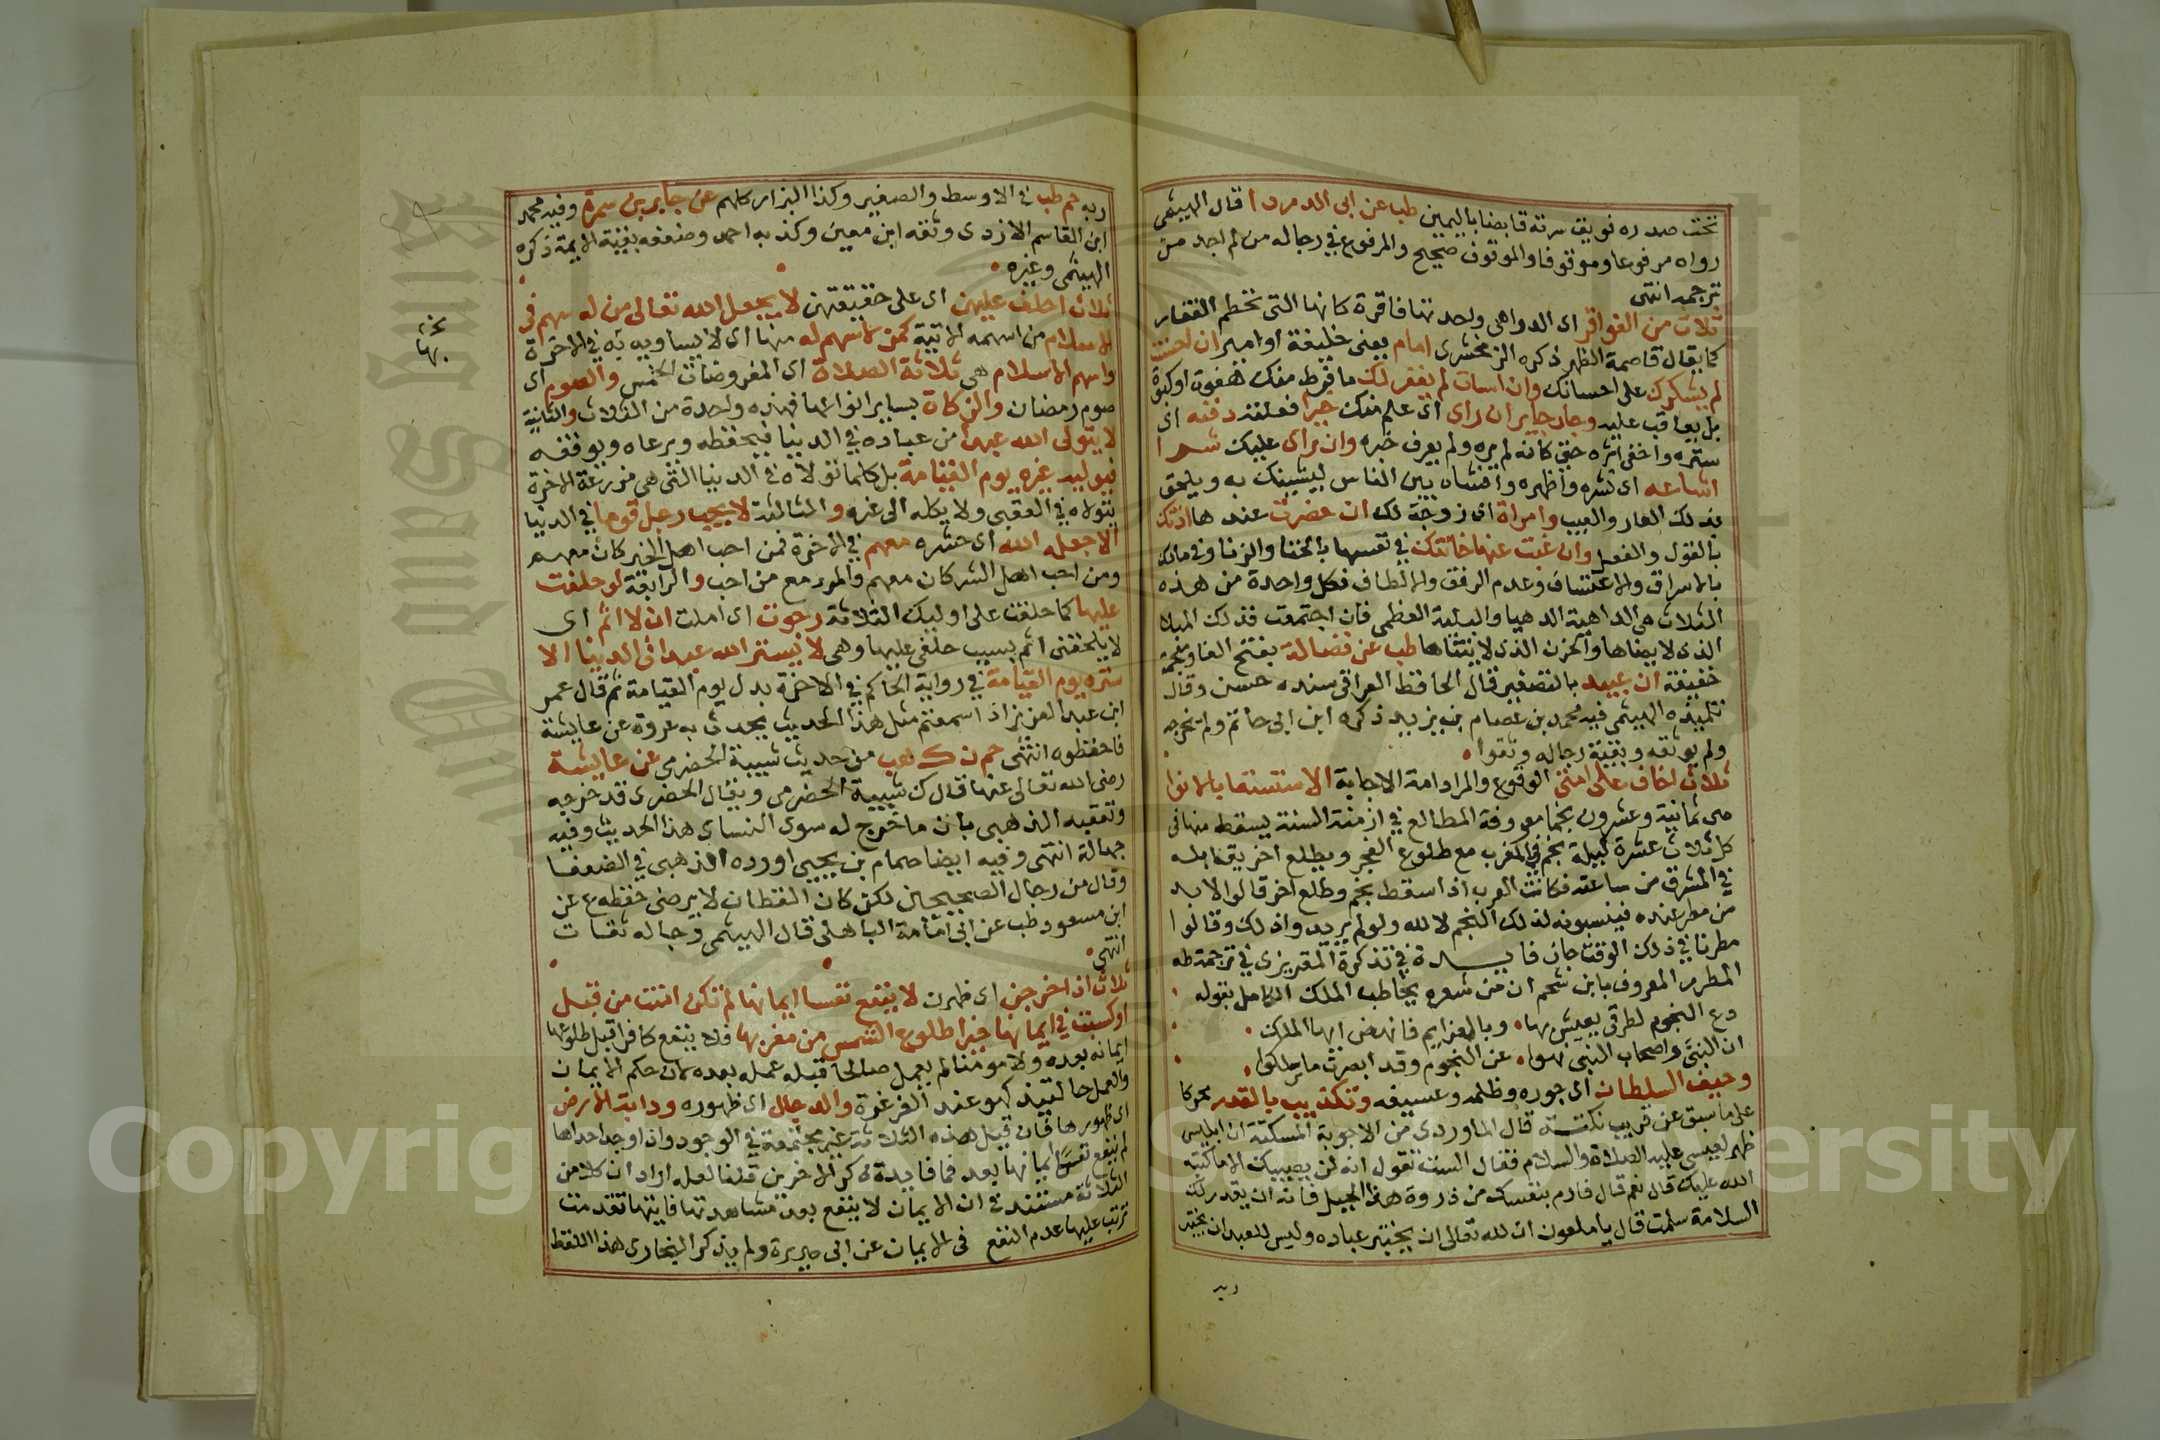 تحت صدره فويق سرته قابضا باليمين طب عن ابى الدردا قال الهيثمى
رواه مرفوعا وموقوفا والموقوف صحيح والمرفوع في رجاله من لم اجد من
ترجمه انتهى
ثلاث من الفواقر اى الدواهى واحدتها فاقرة كانها التى تحطم الفقار
كما يقال قاصمة الظهر ذكره الزمخشرى امام يعنى خليفة او امير ان احسنت
لم يشكرك على احسانك وان اسات لم يغفر لك ما فرط منك من هفوة او كبوة
بل يعاقب عليه وجار جاير ان راى اى علم منك خيرا فعلته دفنه اى
ستره واخفى اثره حتى كانه لم يره ولم يعرف خبره وان راى عليك شرا
اشاعه اى نشره واظهره وافشاه بين الناس ليشينك به ويلحق
بذلك العار والعيب وامراة اى زوجة لك ان حضرت عندها اذتك
بالقول والفعل وان غبت عنها خانتك في نفسها بالخنا والزنا وفي مالك
بالاسراق والاعتساف وعدم الرفق والالطاف فكل واحدة من هذه
الثلاث هى الداهية الدهيا والبلية العظمى فان اجتمعت فذلك البلا
الذى لا يضاها والحزن الذى لا يتناها طب عن فضالة بفتح الفا ومعجمة
خفيفة ان عبيد بالتصغير قال الحافظ العراقى سنده حسن وقال
تلميذه الهيثمى فيه محمد بن عصام بن يزيد ذكره ابن ابى حاتم ولم يخرجه
ولم يوثقه وبقية رجاله وثقوا
ثلاث اخاف على امتى الوقوع والمرادامة الاجابة الاستسقا بالانوا
هى ثمانية وعشرون نجما معروفة المطالع في ازمنة السنة يسقط منها فى
كل ثلاث عشرة ليلة نجم في المغرب مع طلوع الفجر ويطلع اخر يقابله
في المشرق من ساعته فكانت العرب اذا سقط نجم وطلع اخر قالوا لابد
من مطر عنده فينسبونه لذلك النجم لا لله ولو لم يريدوا ذلك وقالوا
مطرنا في ذلك الوقت جاز فايدة في تذكرة المقريزى في ترجمة طه
المطرم المعروف بابن شحم ان من شعره يخاطب الملك الكامل بقوله
دع النجوم لطرقى يعيش بها وبالعزايم فانهض ايها الملك
ان النبى واصحاب النبى نهوا عن النجوم وقد ابصرت ما ملكوا
وحيف السلطان اى جوره وظلمه وعسيفه وتكذيب بالقدر محركا
على ما سبق عن قريب نكتة قال الماوردى من الاجوبة المسكتة ان ابليس
ظهر لعيسى عليه الصلاة والسلام فقال الست تقول انه لن يصيبك الا ما كتبه
الله عليك قال نعم قال فارم بنفسك من ذروة هذا الجبل فانه ان يقدر لك
السلامة سلمت قال يا ملعون ان لله تعالى ان يختبر عباده وليس للعبد ان يختبر
ربه حم طب في الاوسط والصغير وكذا البزار كلهم عن جابر بن سمرة وفيه محمد
ابن القاسم الازدى وثقه ابن معين وكذبه احمد وضعفه بقية الايمة ذكره
الهيثمى وغيره
ثلاث احلف عليهن اى على حقيقتهن لا يجعل الله تعالى من له سهم فى
الاسلام من اسهمه الاتية كمن لا سهم له منها اى لا يساويه به في الاخرة
واسهم الاسلام هى ثلاثة الصلاة اى المفروضات الخمس والصوم اى
صوم رمضان والزكاة بساير انواعها فهذه واحدة من الثلاث والثانية
لا يتولى الله عبدا من عباده في الدنيا فيحفظه ويرعاه ويوفقه
فيوليه غيره يوم القيامة بل كلما تولاه في الدنيا التى هى مزرعة الاخرة
يتولاه في العقبى ولا يكله الى غيره والثالثة لا يحب رجل قوما في الدنيا
الا جعله الله اى حشره معهم في الاخرة فمن احب اهل الخير كان معهم
ومن احب اهل الشر كان معهم والمرء مع من احب والرابعة لو حلفت
عليها كما حلفت على اوليك الثلاثة رجوت اى املت ان لا اثم اى
لا يلحقنى اثم بسبب حلفى عليها وهى لا يستر الله عبدا فى الدنيا الا
ستره يوم القيامة في رواية الحاكم في الاخرة بدل يوم القيامة ثم قال عمر
ابن عبد العزيز اذا سمعتم مثل هذا الحديث يحدث به عروة عن عايشة
فاحفظوه انتهى حم ن ك هب من حديث شيبة الحضرمى عن عايشة
رضى الله تعالى عنها قال ك شيبة الحضرمى ويقال الخضرى قد خرجه
وتعقبه الذهبى بان ما خرج له سوى النساى هذا الحديث وفيه
جهالة انتهى وفيه ايضا همام بن يحيى اورده الذهبى في الضعفا
وقال من رجال الصحيحين لكن كان القطان لا يرضى حفظه ع عن
ابن مسعود طب عن ابى امامة الباهلى قال الهيثمى رجاله ثقات
انتهى
ثلاث اذا خرجن اى ظهرن لا ينفع نفسا ايمانها لم تكن امنت من قبل
او كسبت في ايمانها خيرا طلوع الشمس من مغربها فلا ينفع كافرا قبل طلوعها
ايمانه بعده ولا مومنا لم يعمل صالحا قبله عمله بعده لان حكم الايمان
والعمل حالتيذ كهو عند الغرغرة والدجال اى ظهوره ودابة الارض
اى ظهورها فان قيل هذه الثلاثة غير مجتمعة في الوجود واذا وجد احداها
لم ينفع نفسا ايمانها بعد فما فايدة ذكر الاخرين قلنا لعله اراد ان كلا من
الثلاثة مستند في ان الايمان لا ينفع بعد مشاهدتها فايتها تقدمت
ترتب عليها عدم النفع فى الايمان عن ابى هريرة ولم يذكر البخارى هذا اللفظ
ربه
King Saud University
Copyright © King Saud University